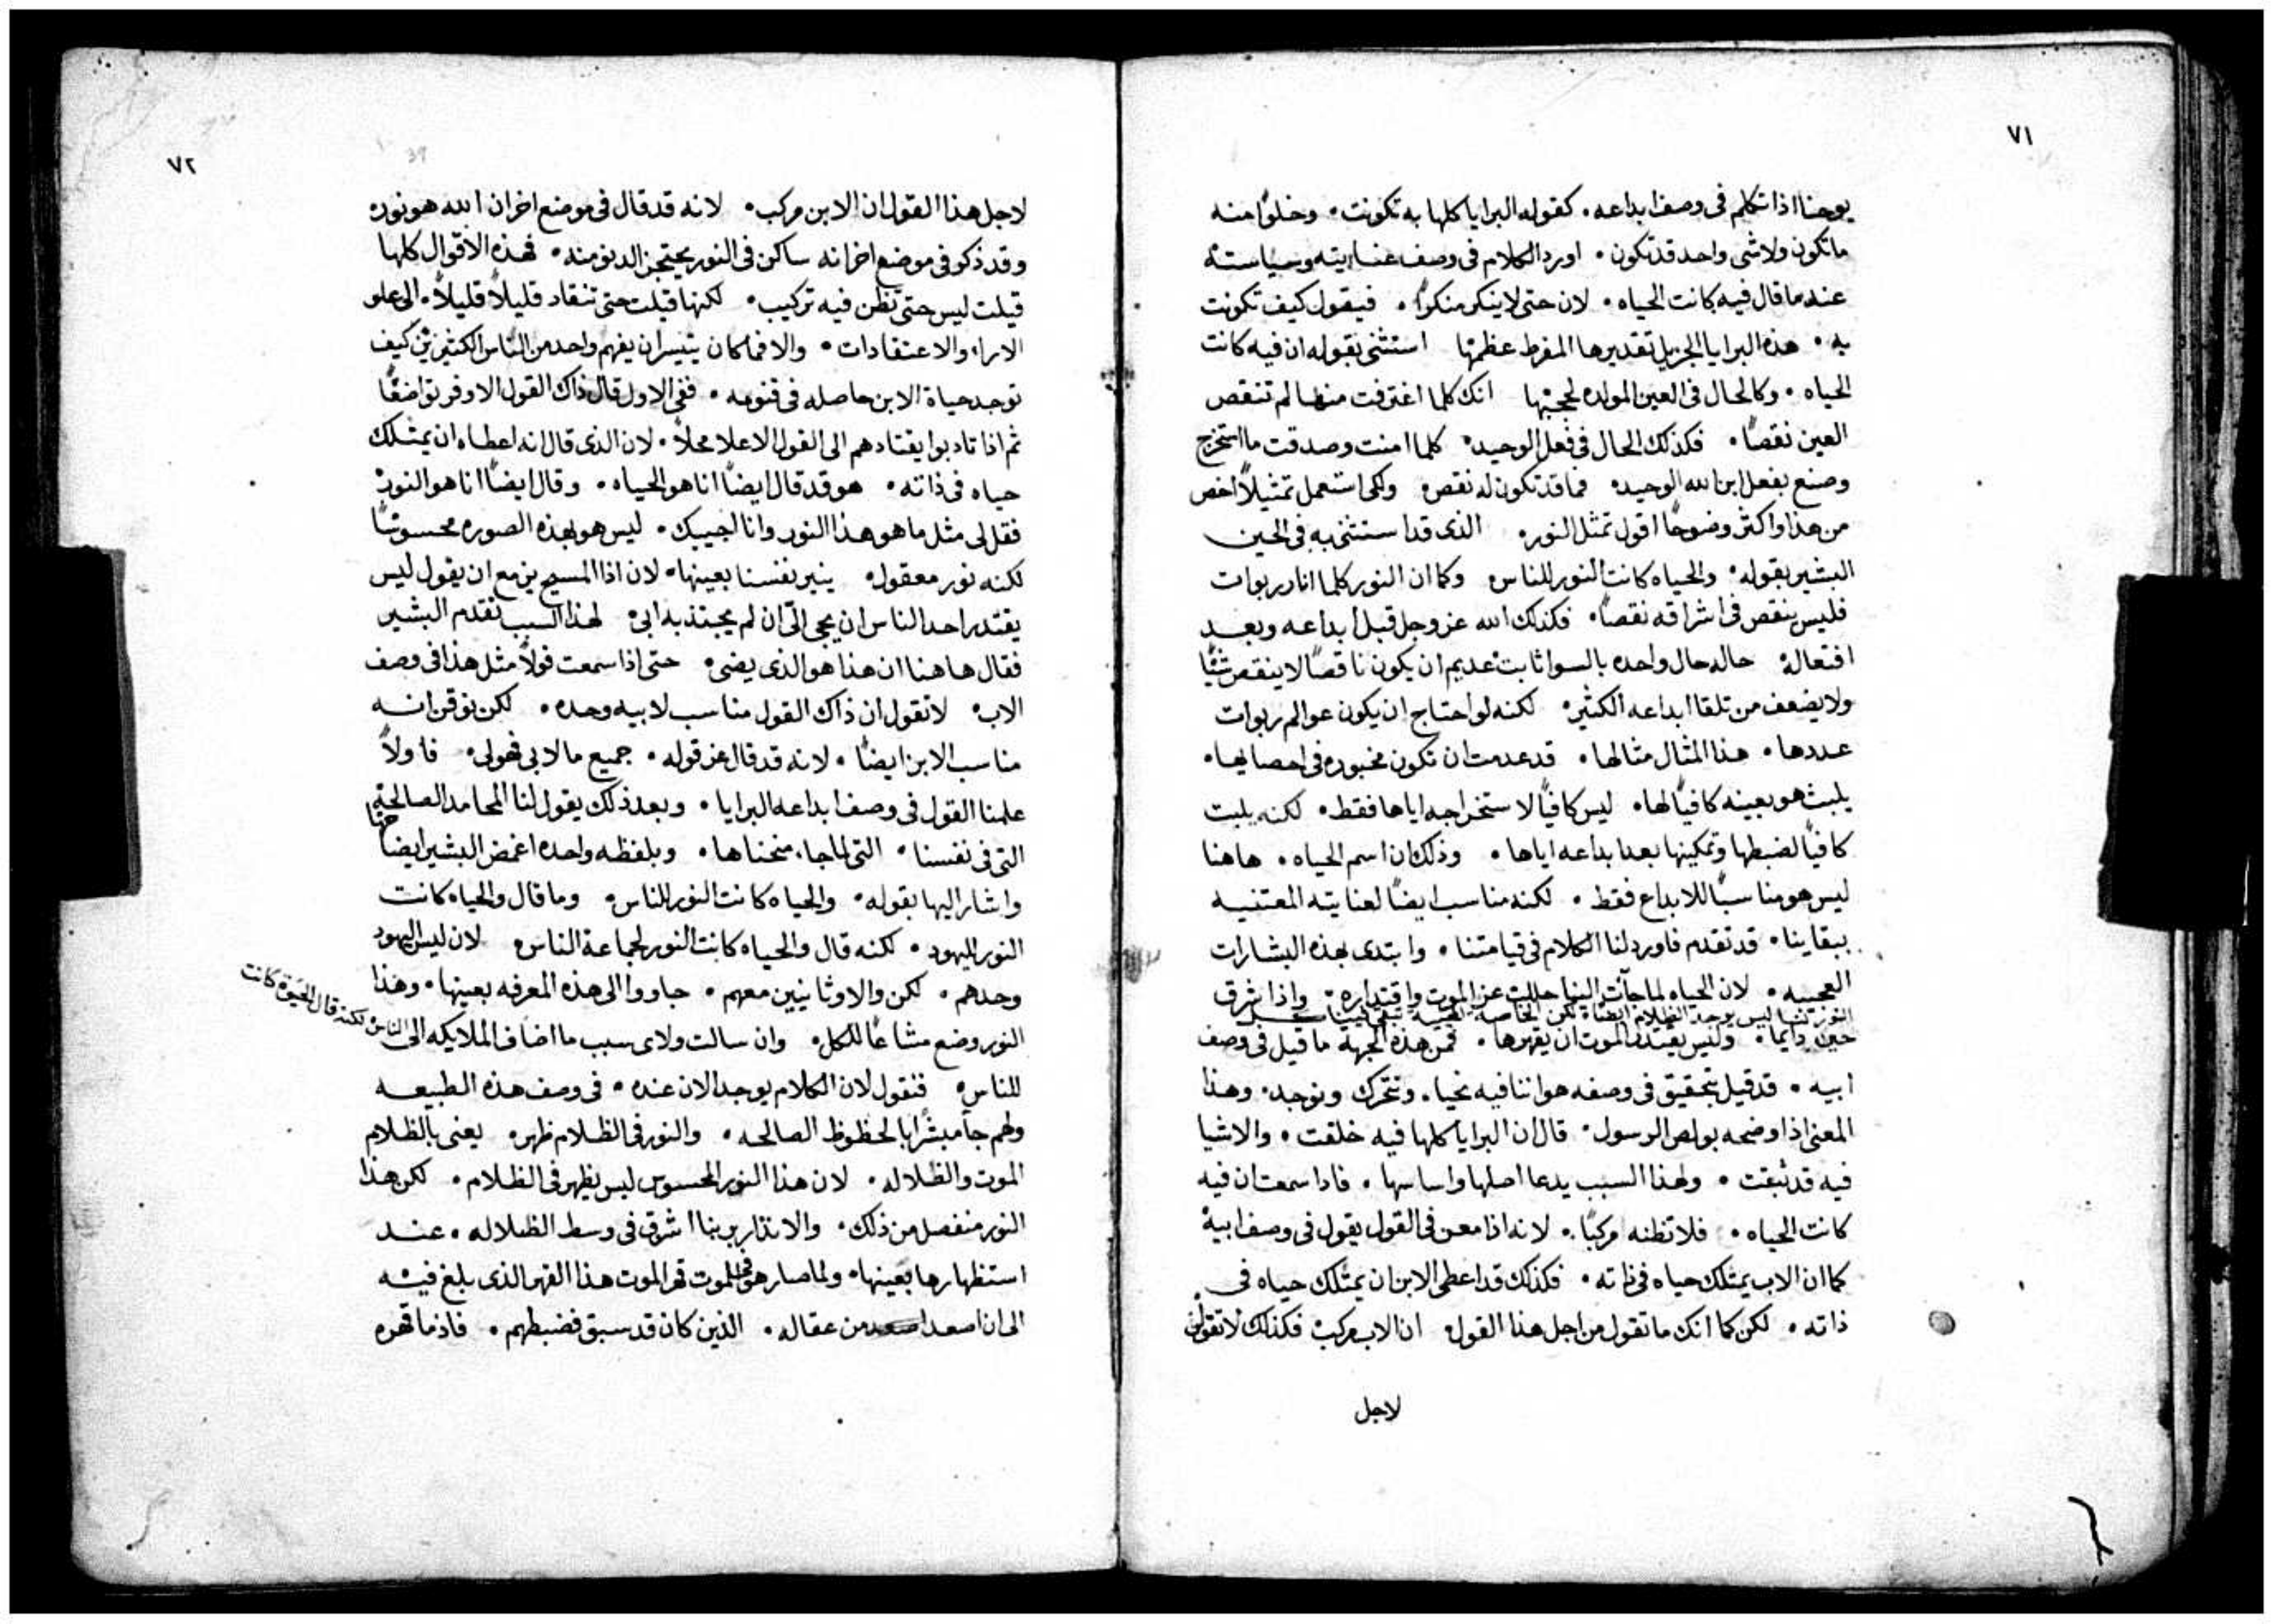 ٧١
يوحنا اذا تكلم فى وصف ابداعه. كقوله البرايا كلها به تكونت. وخلوا منه
ما تكون ولا شى واحد قد تكون. اورد الكلام فى وصف عنايته وسياسته
عند ما قال فيه كانت الحياه. لان حتى لا ينكر منكرا. فيقول كيف تكونت
به. هذه البرايا الجزيل تقديرها المفرط عظمها استثنى بقوله ان فيه كانت
الحياه. وكالحال فى العين المولده لججها انك كلما اغترفت منها لم تنقص
العين نقصا. فكذلك الحال فى فعل الوحيد. كلما امنت وصدقت ما استخرج
وصنع بفعل ابن الله الوحيد. فما قد تكون له نقص. ولكى استعمل تمثيلا اخص
من هذا واكثر وضوحا اقول تمثل النور. الذى قد استثنى به فى الحين
البشير بقوله. والحياه كانت النور للناس وكما ان النور كلما انار ربوات
فليس ينقص فى اشراقه نقصا. فكذلك الله عز وجل قبل ابداعه وبعد
افتعاله حاله حال واحده بالسوا ثابت عديم ان يكون ناقصا لا ينقص شيا
ولا يضعف من تلقا ابداعه الكثير. لكنه لو احتاج ان يكون عوالم ربوات
عددها. هذا المثال مثالها. قد عدمت ان تكون مخبوره فى احصايها.
يلبث هو بعينه كافيا لها. ليس كافيا لاستخراجه اياها فقط. لكنه يلبث
كافيا لضبطها وتمكينها بعد ابداعه اياها. وذلك ان اسم الحياه. هاهنا
ليس هو مناسبا للابداع فقط. لكنه مناسب ايضا لعنايته المعتنيه
ببقاينا. قد تقدم فاورد لنا الكلام فى قيامتنا. وابتدى بهذه البشارات
العجيبه. لان الحياه لما جآت الينا حللت عز الموت واقتداره. واذا شرق
النور لنا ليس يوجد الظلام ايضا لكن الخاصه تبقى فينا
حين دايما. وليس يقتدر الموت ان يقهرها. فمن هذه الجهة ما قيل فى وصف
ابيه. قد قيل بتحقيق فى وصفه هو اننا فيه نحيا. ونتحرك ونوجد. وهذا
المعنى اذا وضحه بولص الرسول. قال ان البرايا كلها فيه خلقت. والاشيا
فيه قد ثبتت. ولهذا السبب يدعا اصلها واساسها. فاذا سمعت ان فيه
كانت الحياه. فلا تظنه مركبا. لانه اذا معن فى القول يقول فى وصف ابيه
كما ان الاب يمتلك حياه فى ذاته. فكذلك قد اعطى الابن ان يمتلك حياه فى
ذاته. لكن كما انك ما تقول من اجل هذا القول. ان الاب مركب فكذلك لا تقولن
لاجل
٧٢
39
لاجل هذا القول ان الابن مركب. لانه قد قال فى موضع اخر ان الله هو نور.
وقد ذكر فى موضع اخر انه ساكن فى النور يحتجز الدنو منه. فهذه الاقوال كلها
قيلت ليس حتى تظن فيه تركيب. لكنها قيلت حتى تنقاد قليلا قليلا. الى علو
الارا، والاعتقادات. والا فما كان يتيسر ان يفهم واحد من الناس الكثيرين كيف
توجد حياة الابن حاصله فى قنومه. ففى الاول قال ذاك القول الاوفر تواضعا
ثم اذا تادبوا يقتادهم الى القول الاعلا محلا. لان الذى قال انه اعطاه ان يمتلك
حياه فى ذاته. هو قد قال ايضا انا هو الحياه. وقال ايضا انا هو النور
فقل لى مثل ما هو هذا النور وانا اجيبك. ليس هو بهذه الصوره محسوسا
لكنه نور معقول. ينير نفسنا بعينها. لان اذا المسيح يزمع ان يقول ليس
يقتدر احد الناس ان يجى الىّ ان لم يجتذبه ابى. لهذا السبب تقدم البشير
فقال هاهنا ان هذا هو الذى يضى. حتى اذا سمعت قولا مثل هذا فى وصف
الاب. لا تقول ان ذاك القول مناسب لابيه وحده. لكن توقن انه
مناسب الابن ايضا. لانه قد قال عز قوله. جميع ما لابى فهو لى. فاولا
علمنا القول فى وصف ابداعه البرايا. وبعد ذلك يقول لنا المحامد الصالحة
التى فى نفسنا. التى لما جا، منحناها. وبلفظه واحده اغمض البشير ايضا
واشار اليها بقوله. والحياه كانت النور للناس. وما قال والحياه كانت
النور لليهود. لكنه قال والحياه كانت النور لجماعة الناس لان ليس اليهود
وحدهم. لكن والاوثانيين معهم. جاووا الى هذه المعرفه بعينها. وهذا
النور وضع مشاعا للكل. وان سالت ولاى سبب ما اضاف الملايكه الى الناس لكنه قال الحيوة كانت
للناس. فنقول لان الكلام يوجد الان عنده. فى وصف هذه الطبيعه
ولهم جآ مبشرا بالحظوظ الصالحه. والنور فى الظلام ظهر. يعنى بالظلام
الموت والظلاله. لان هذا النور المحسوس ليس يظهر فى الظلام. لكن هذا
النور منفصل من ذلك. والانذار بربنا اشرق فى وسط الظلاله. عند
استظهارها بعينها. ولما صار هو فى الموت قهر الموت هذا القهر الذى بلغ فيه
الى ان اصعد من عقاله. الذين كان قد سبق فضبطهم. فاذ ما قهره